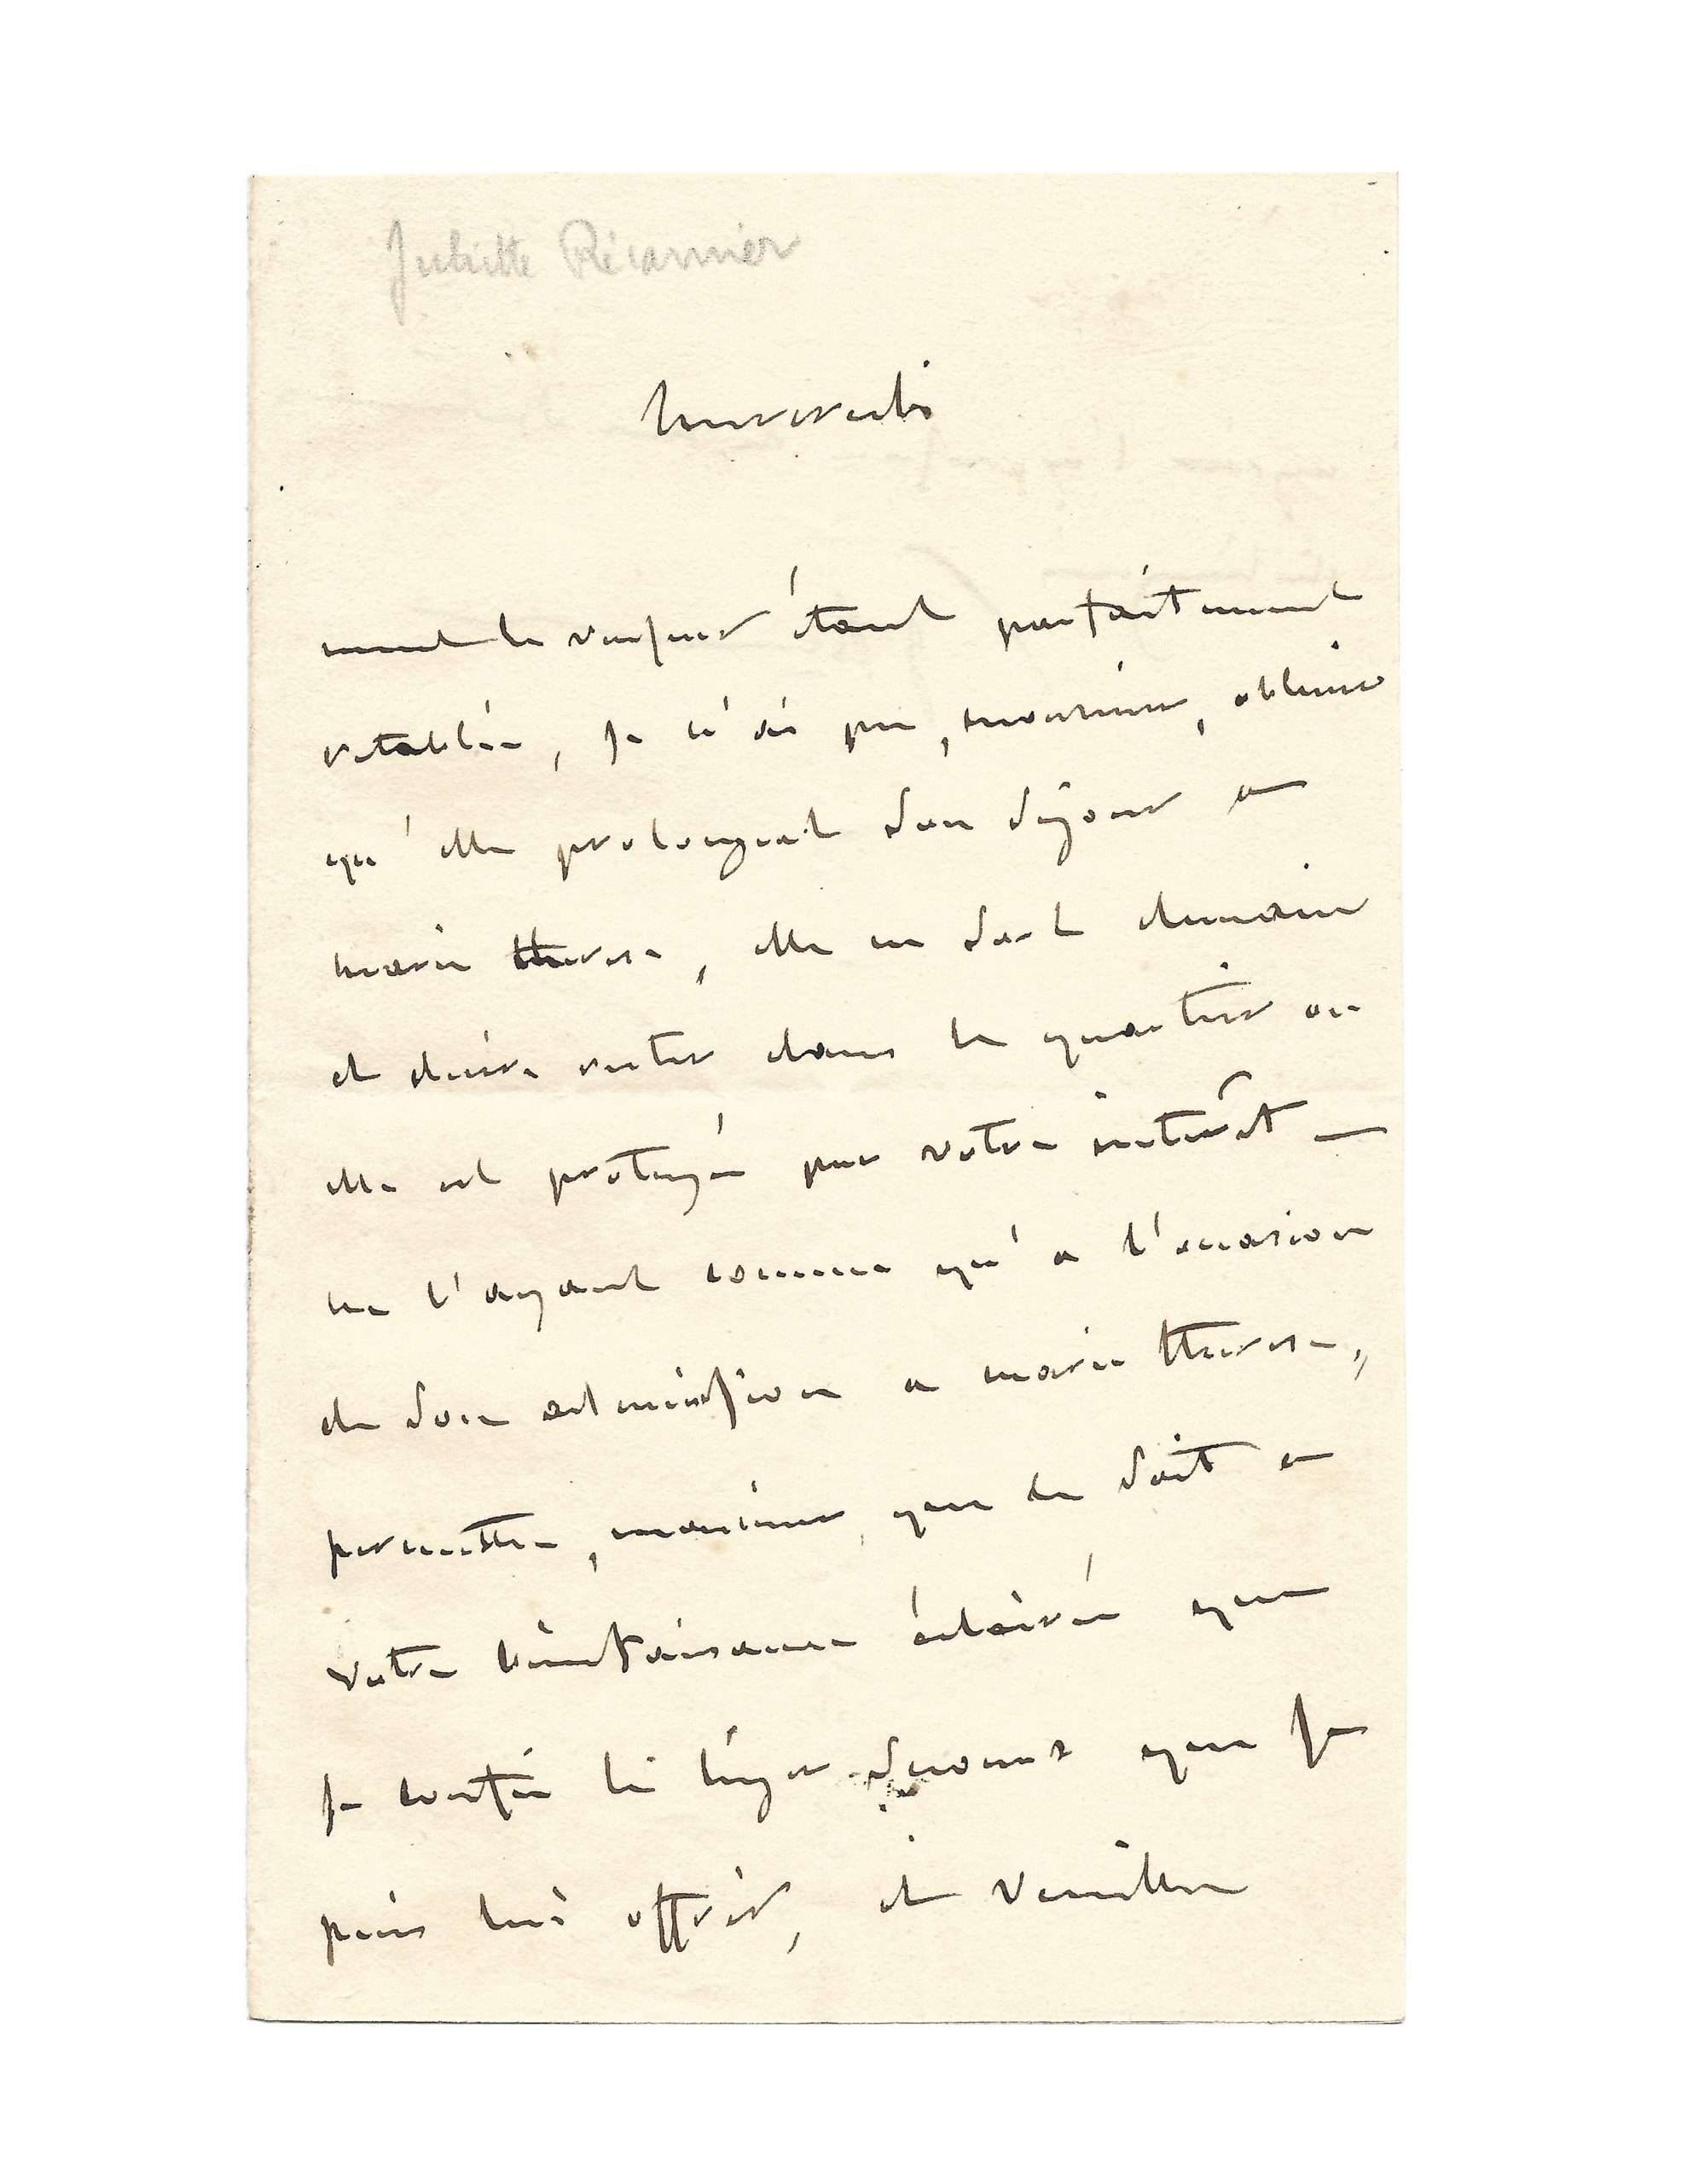 Juliette Récamier
mercredi
étant parfaitement
retablie, je n'ai pu, monsieur, obtenir
qu'elle prolongeat son séjour a
marie therese, elle en sort demain
et desire rester dans le quartier ou
elle est protégée par votre intérêt —
ne l'ayant connue qu'a l'occasion
de son admission a marie therese,
permettez, monsieur, que ce soit a
votre bienfaisance éclairée que
je confie le léger secours que je
puis lui offrir, et veuillez